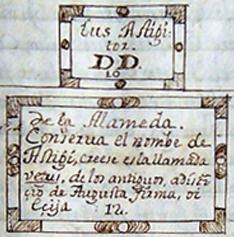 tus Astigi
tor.
DD.
10
de la Alameda.
Conserua el nombre de
Astigi, creese es la llamada
verus, de los antiguos, a distī
çio de Augusta firma, oi
Eçija 12.